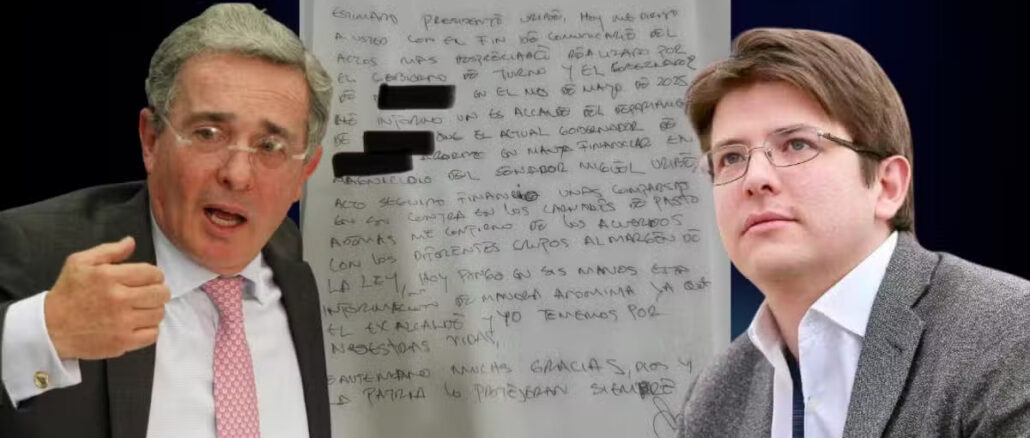 ESTIMADO PRESIDENTE URIBE, HOY ME DIRIJO
A USTED CON EL FIN DE COMUNICARLE DEL
ACTOS MAS DESPRECIABLE REALIZADO POR
EL GOBIERNO DE TURNO Y EL GOBERNADOR
DE EN EL MES DE MAYO DE 2025
ME INFORMO UN EX ALCALDE DEL DEPARTAMENTO
DE QUE EL ACTUAL GOBERNADOR DE
EN FINANCIAR EL
MAGNICIDIO DEL SENADOR MIGUEL URIBE,
ACTO SEGUIDO FINANCIO UNAS COMPARSAS
EN SU CONTRA EN LOS CARNAVALES DE PASTO
ADEMAS ME CONFIRMO DE LOS ACUERDOS
CON LOS DIFERENTES GRUPOS AL MARGEN DE
LA LEY, HOY PONGO EN SUS MANOS ESTA
INFORMACION DE MANERA ANONIMA YA QUE
EL EX ALCALDE Y YO TEMEMOS POR
NUESTRAS VIDAS,
DE ANTEMANO MUCHAS GRACIAS, DIOS Y
LA PATRIA LO PROTEJERAN SIEMPRE